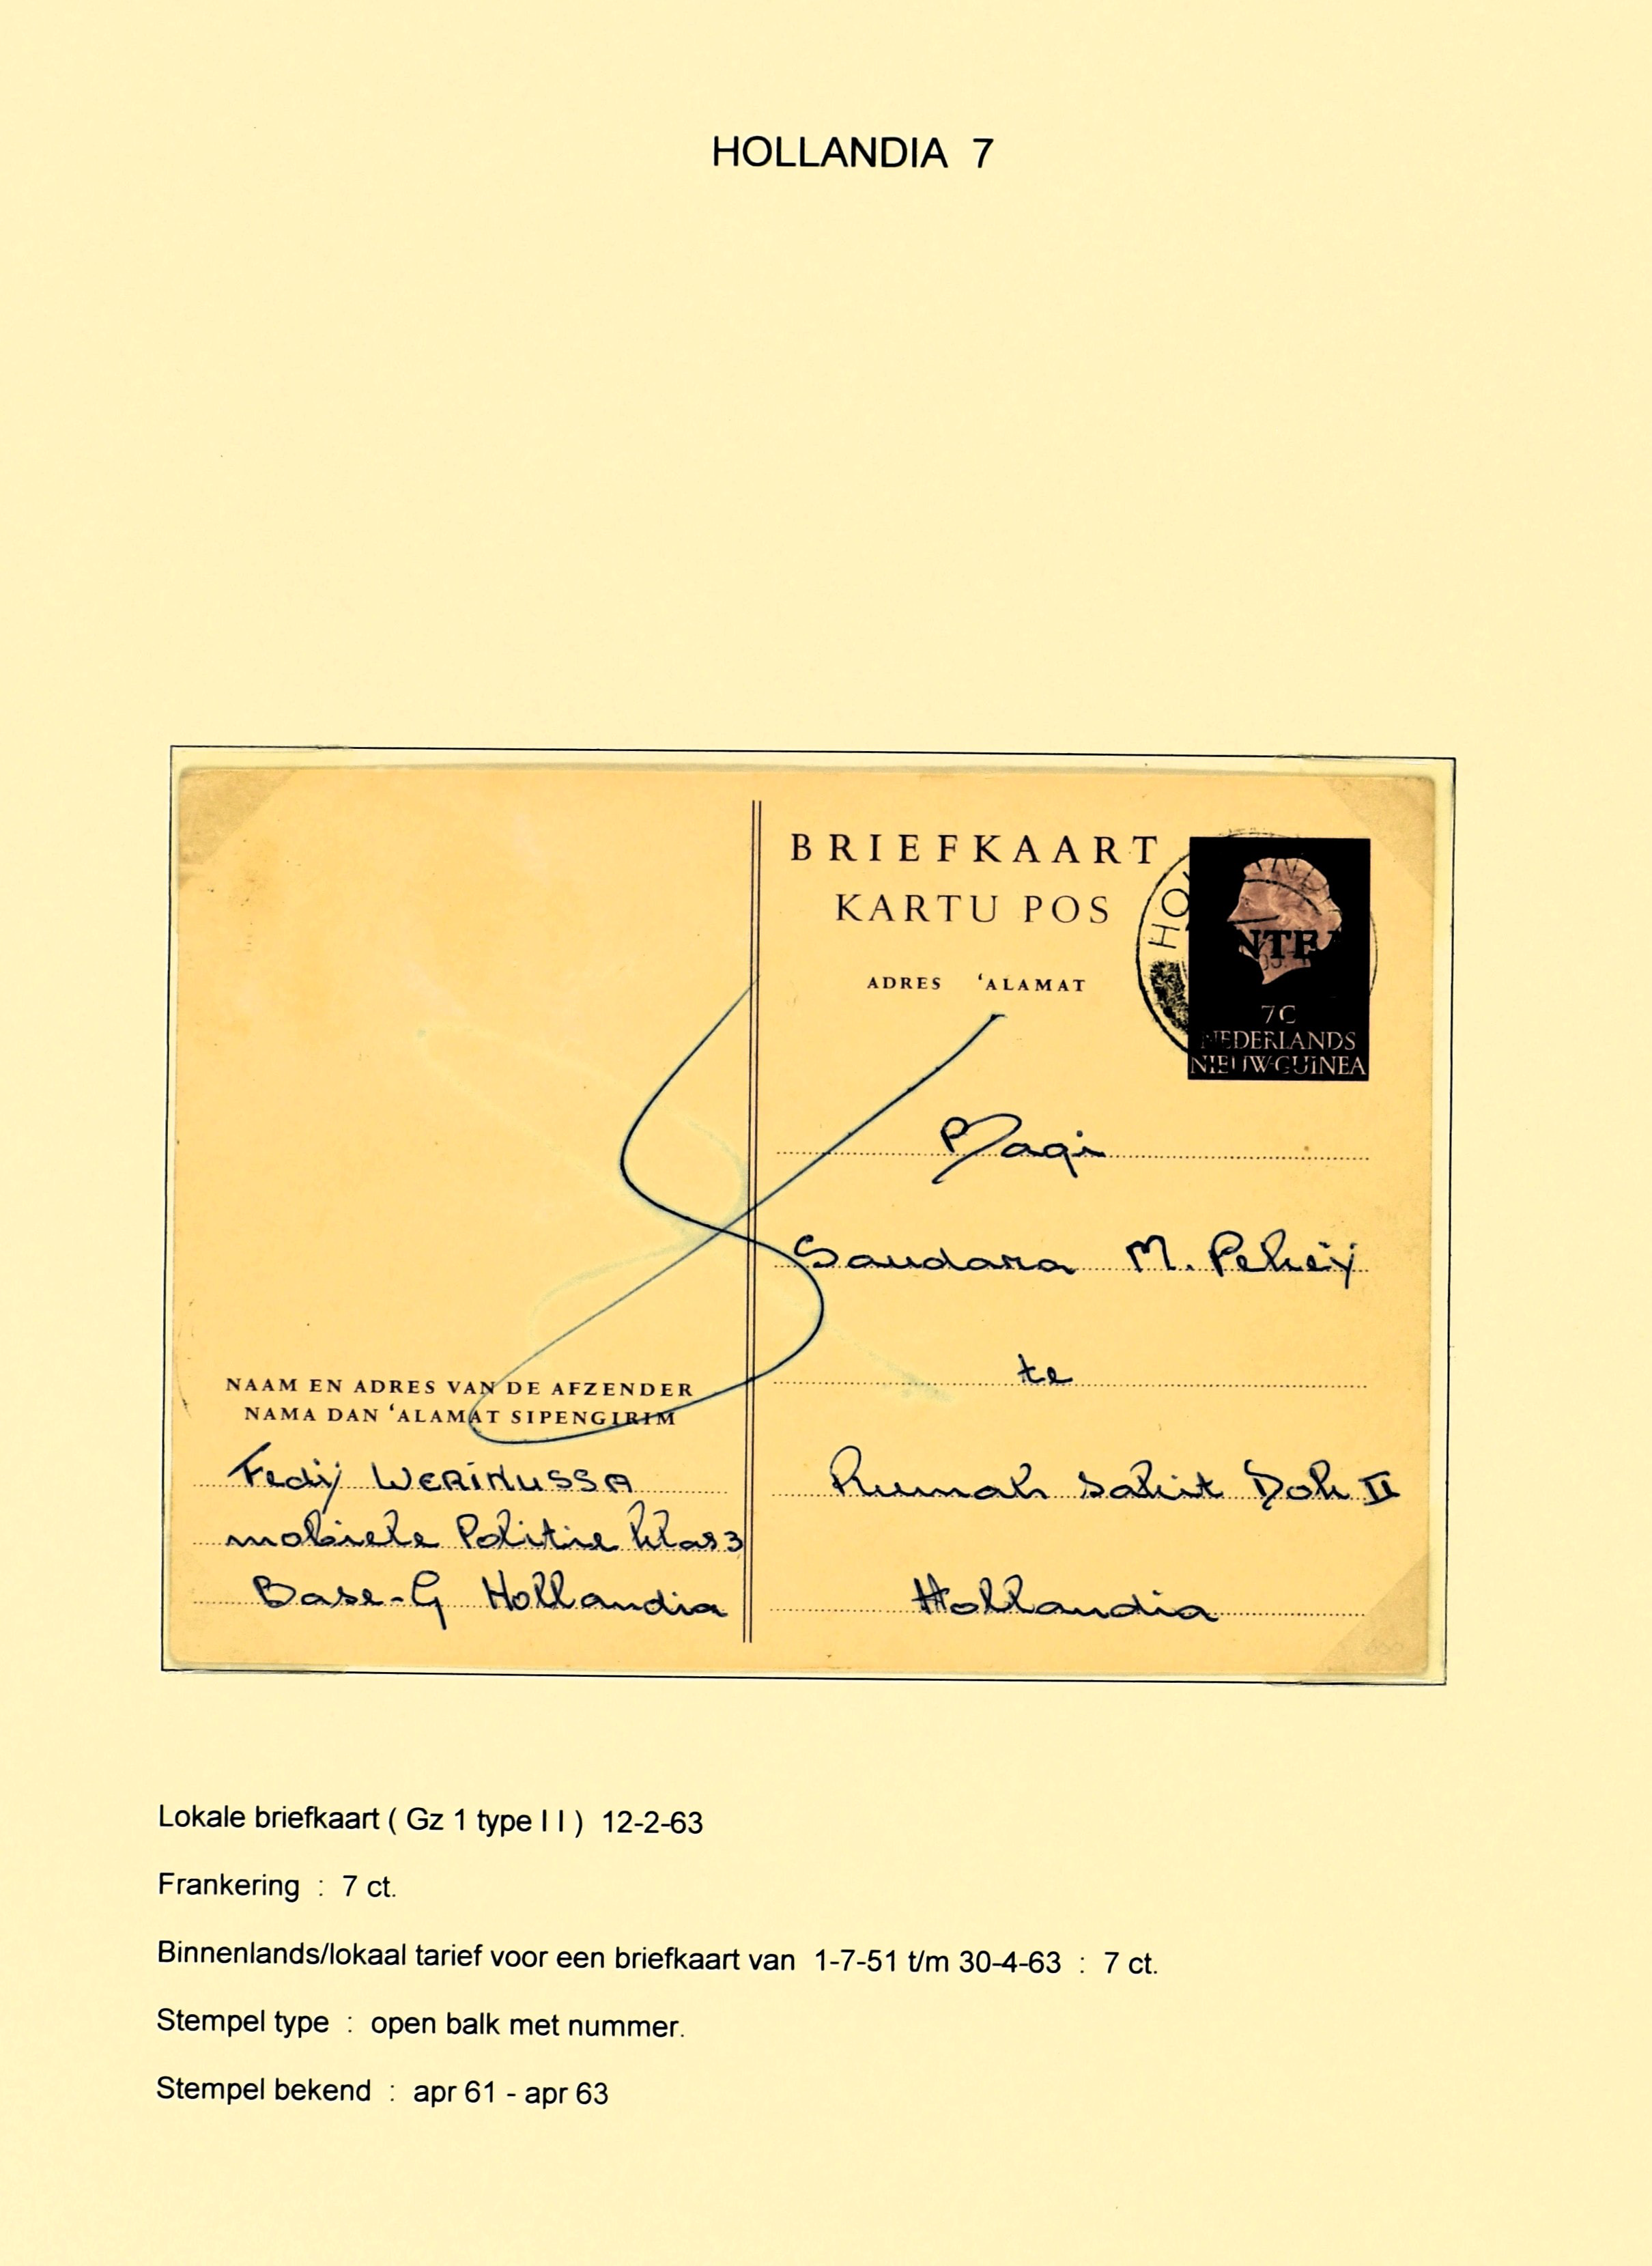 HOLLANDIA 7
BRIEFKAART
KARTU POS
ADRES 'ALAMAT
HOLLANDIA
NTEA
7C
NEDERLANDS
NIEUW-GUINEA
Bagi
Saudara M. Pekeij
te
Rumah Sakit Dok II
Hollandia
NAAM EN ADRES VAN DE AFZENDER
NAMA DAN 'ALAMAT SIPENGIRIM
Fedij WERINUSSA
mobiele Politie klas 3
Base-G Hollandia
Lokale briefkaart ( Gz 1 type I I ) 12-2-63
Frankering : 7 ct.
Binnenlands/lokaal tarief voor een briefkaart van 1-7-51 t/m 30-4-63 : 7 ct.
Stempel type : open balk met nummer.
Stempel bekend : apr 61 - apr 63